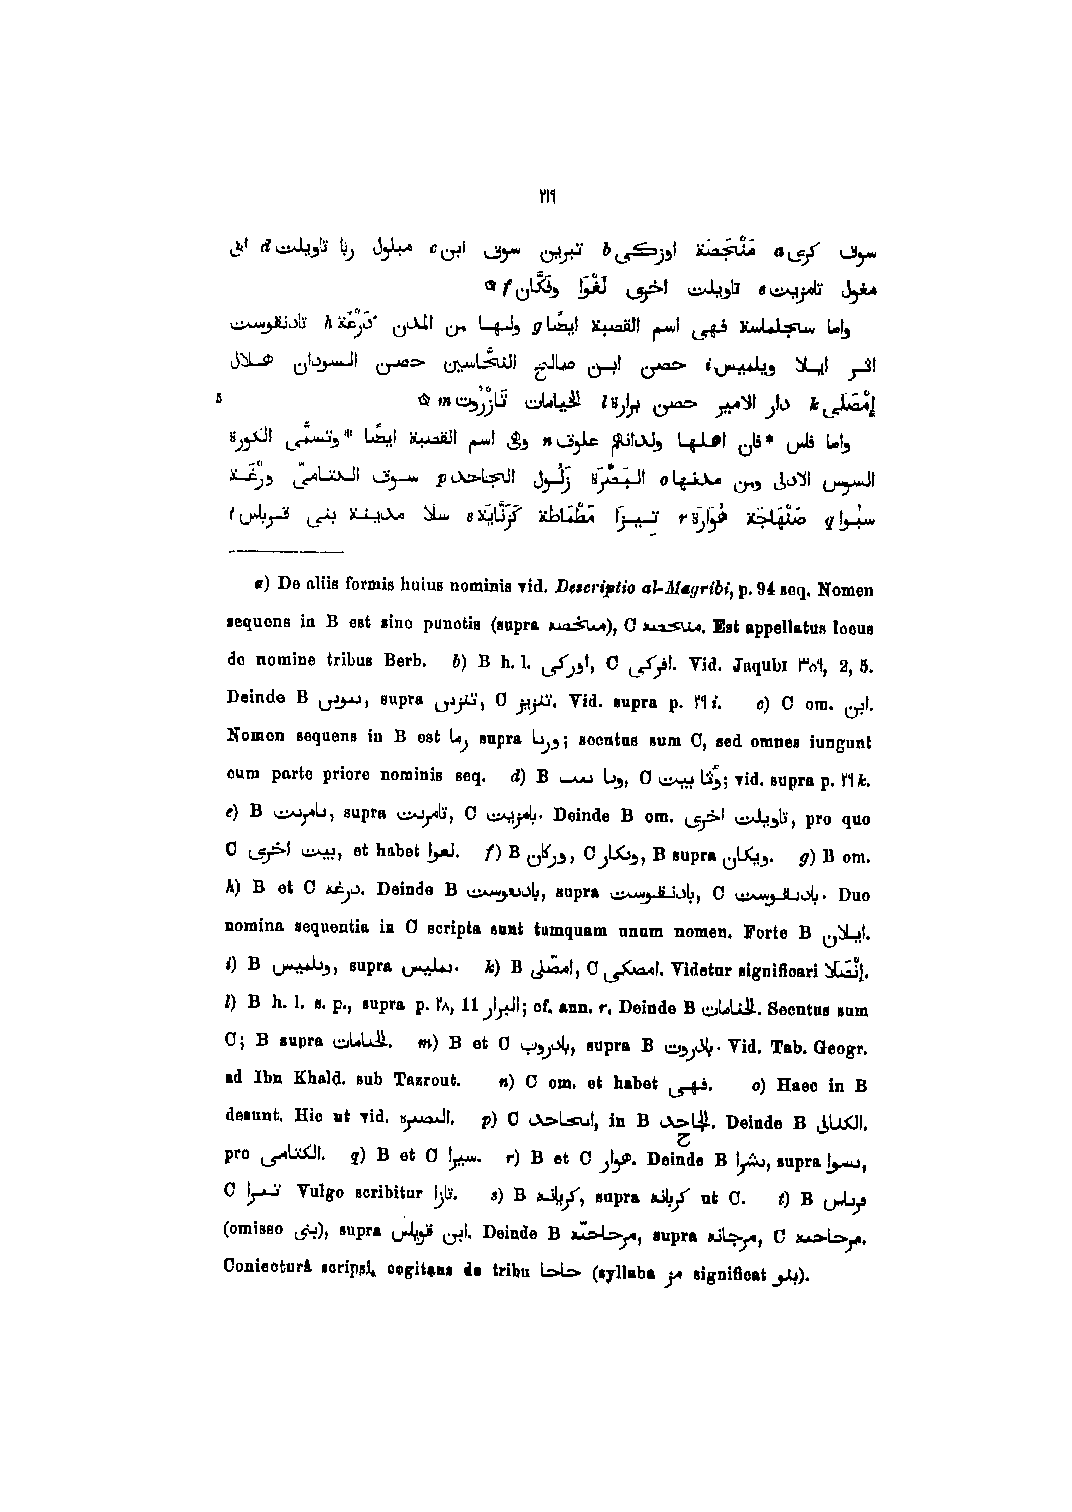 ٢١٩
سوق كرى a مَنْحَصَة اوزكى b تبرين سوق ابن c مبلول ربا تاويلت d ابى
مغول تامزيت e تاويلت اخرى لَغْوَا وفَكَّان f ۞
واما سجلماسة فهى اسم القصبة ايضًا g ولها من المدن دَرْعَة h تادنقوست
اثر ايلا ويلميس i حصن ابن صالح النحّاسين حصن السودان هلال
إمْصَلى k دار الامير حصن برارة l الخيامات تَازْرُوت m ۞ 5
واما فاس *فان اهلها ولدانهم علوق n وفى اسم القصبة ايضًا *وتسمّى الكورة
السوس الادنى ومن مدنها o البَصْرَة زَلُول الجاحد p سوق الكتامىّ ورْغَة
سبُوا q صَنْهَاجَة هُوَارَة r تيزَا مَطْمَاطَة كَزْنَايَة s سلا مدينة بنى قرباس t
a) De aliis formis huius nominis vid. Descriptio al-Magribi, p. 94 seq. Nomen
sequens in B est sine punctis (supra منحصه), C متحصه. Est appellatus locus
de nomine tribus Berb. b) B h. l. اوركى, C افركى. Vid. Jaqubi ٣٥٩, 2, 5.
Deinde B, supra, C تنزيز. Vid. supra p. ٢٩ i. c) C om. ابن.
Nomen sequens in B est رما supra وربا; secutus sum C, sed omnes iungunt
cum parte priore nominis seq. d) B, C; vid. supra p. ٢٩ k.
e) B, supra تامريت, C بامزييت. Deinde B om. تاويلت اخرى, pro quo
C بيت اخرى, et habet لعوا. f) B وركان, C وبكار, B supra ويكان. g) B om.
h) B et C درغه. Deinde B بادىعوست, supra بادنقوست, C بادنقوست. Duo
nomina sequentia in C scripta sunt tamquam unum nomen. Forte B ايلان.
i) B وىلميس, supra يمليس. k) B امصّلى, C امصكى. Videtur significari إنْصَلا.
l) B h. l. s. p., supra p. ٢٨, 11 البرار; cf. ann. r. Deinde B الحنامات. Secutus sum
C; B supra الخىامات. m) B et C بادروب, supra B بلاروت. Vid. Tab. Geogr.
ad Ibn Khald. sub Tazrout. n) C om. et habet فهى. o) Haec in B
desunt. Hic ut vid. البصره. p) C الححاحد, in B الجاحد. Deinde B الكتالى,
pro الكتامى. q) B et C سيرا. r) B et C هوار. Deinde B بشرا, supra بسوا,
C تميرا Vulgo scribitur تازا. s) B كربانه, supra كزبانه ut C. t) B فرىاس
(omisso بنى), supra ابن قوباس. Deinde B مرحاحنّه, supra مرجانه, C مرحاحيه.
Coniecturâ scripsi, cogitans de tribu حاحا (syllaba مز significat بلو).